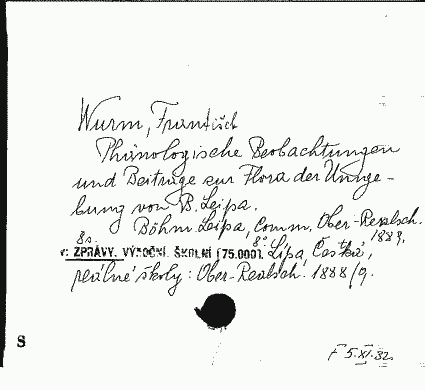 Wurm, František
Phänologische Beobachtungen
und Beiträge zur Flora der Umge-
bung von B. Leipa.
Böhm. Leipa, Comm. Ober-Realsch.
8s. 1889,
v: ZPRÁVY, VÝROČNÍ, ŠKOLNÍ [75.000]. 8° Lípa, Česká,
reálné školy: Ober-Realsch. 1888/9.
S
F 5.XI.32.